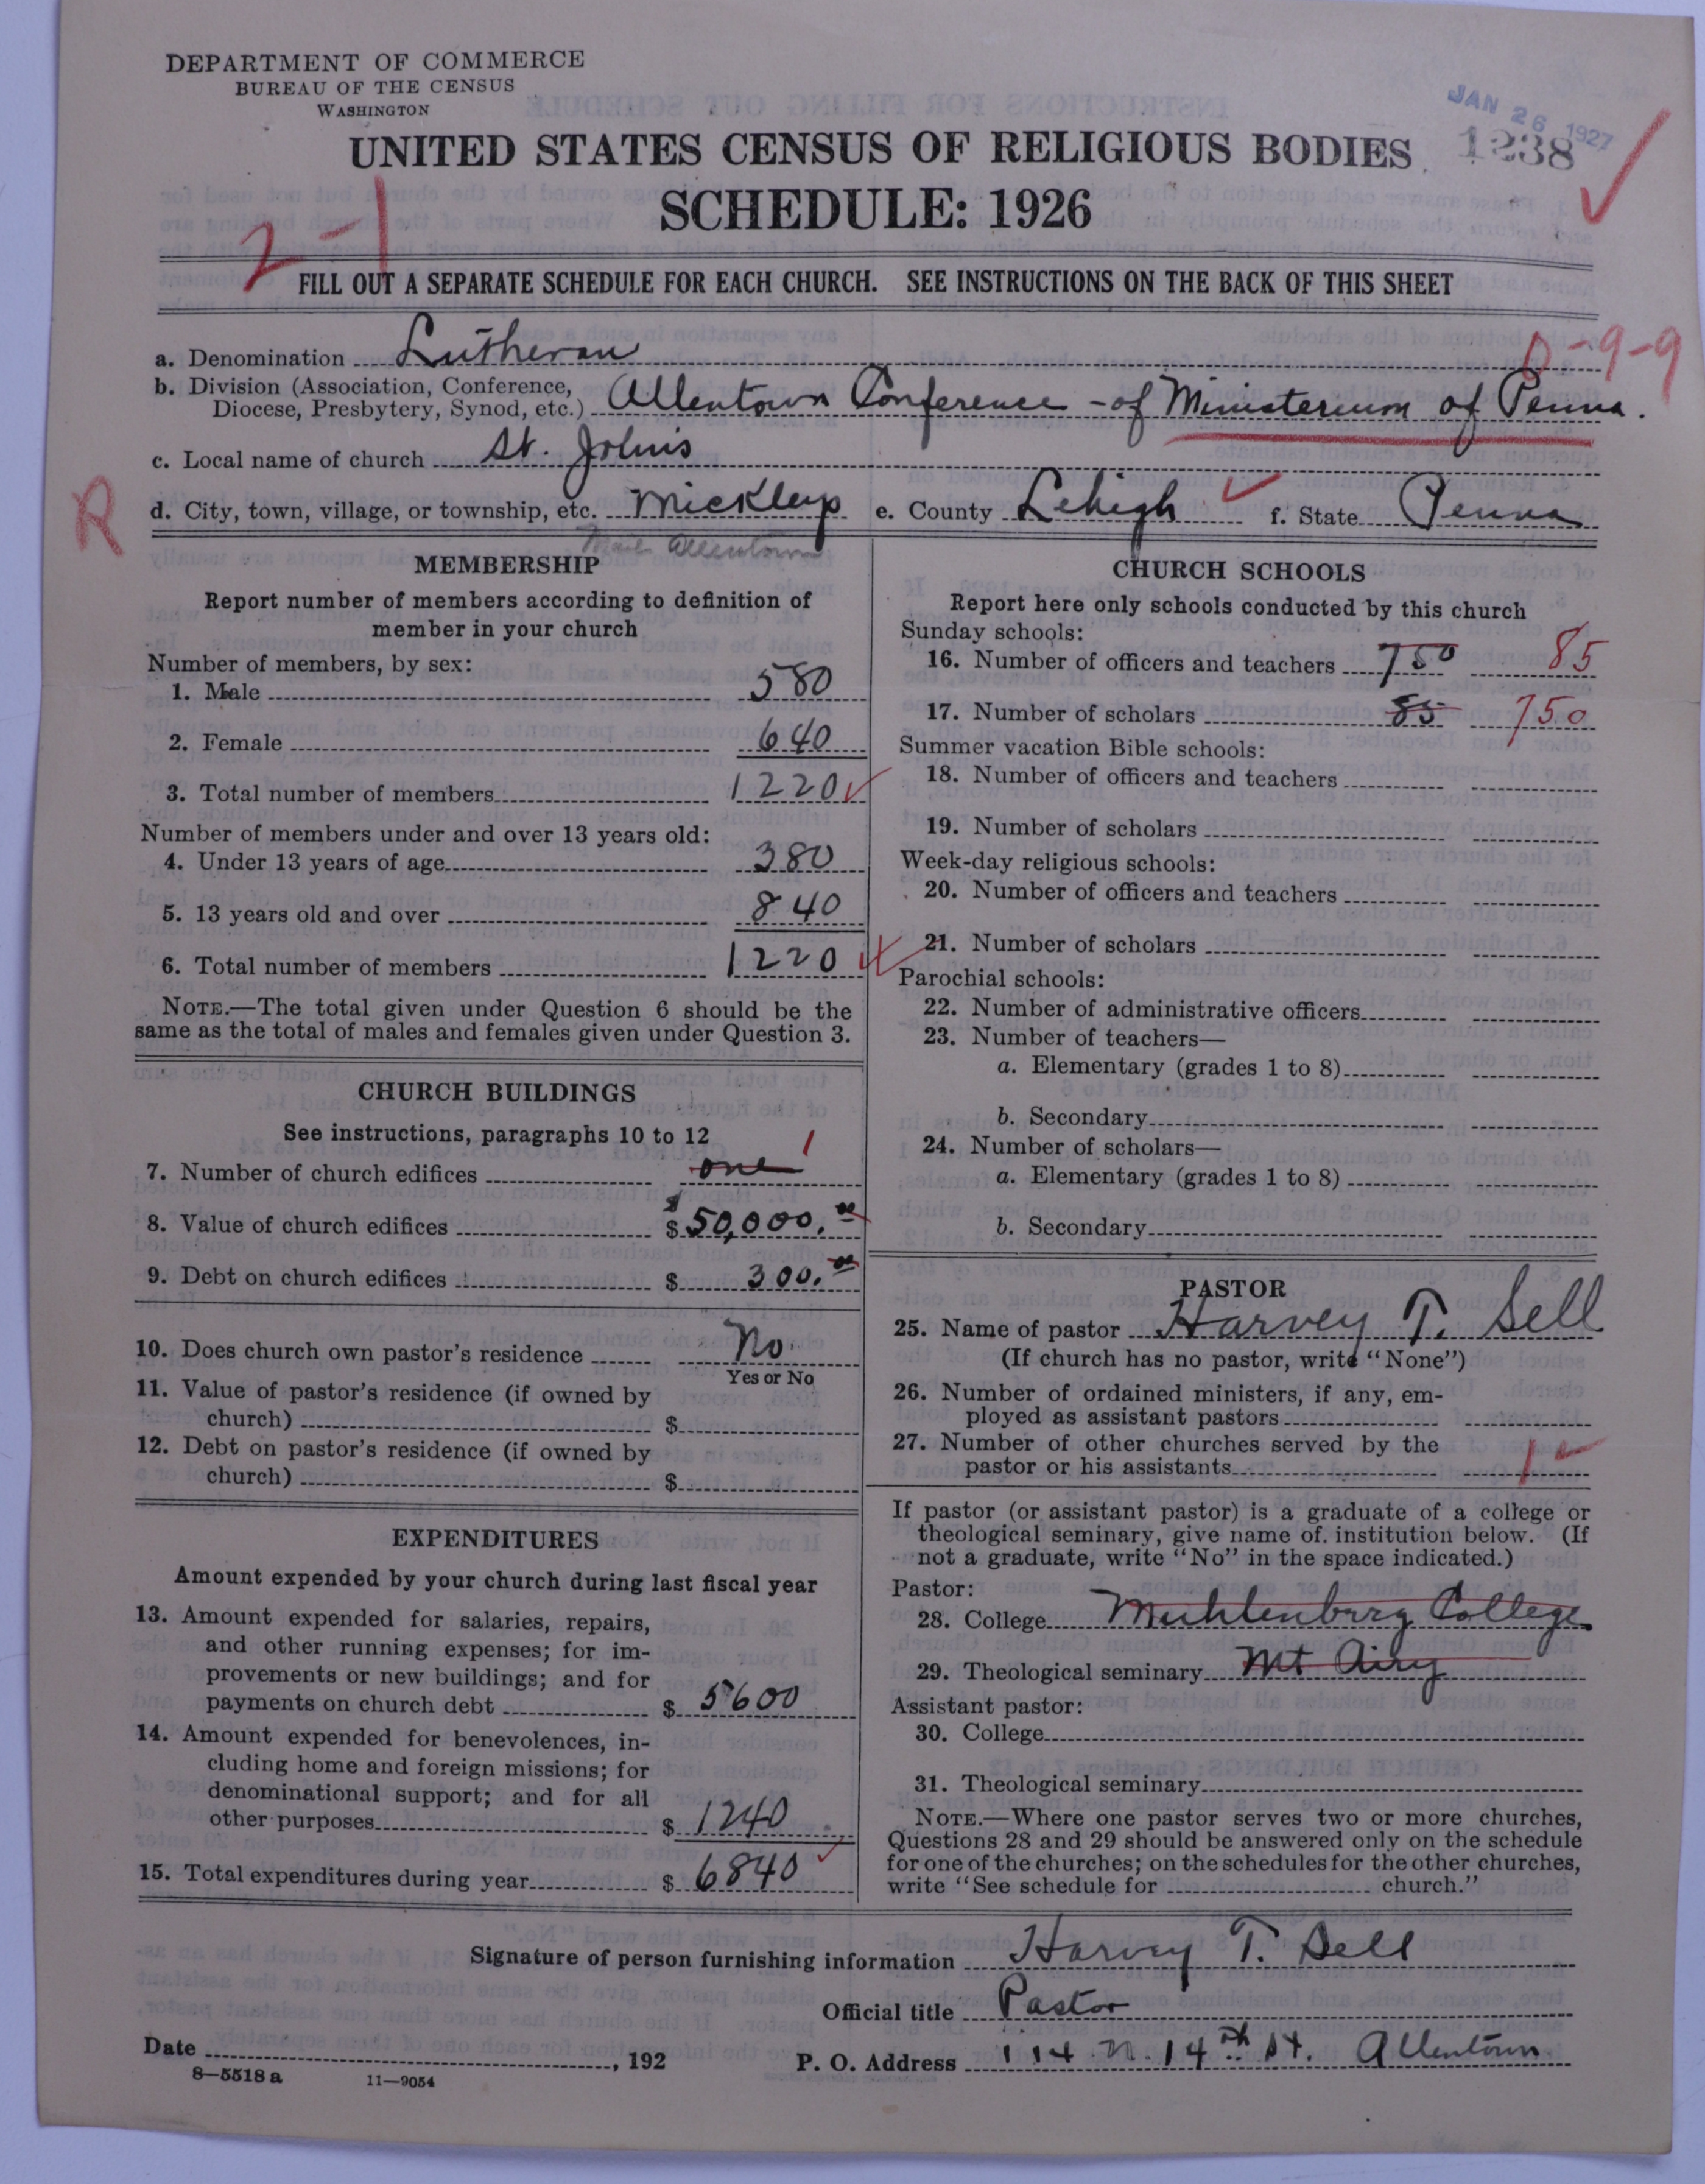 DEPARTMENT OF COMMERCE
BUREAU OF THE CENSUS
WASHINGTON
JAN 26 1927
UNITED STATES CENSUS OF RELIGIOUS BODIES 1238
SCHEDULE: 1926
2-1
FILL OUT A SEPARATE SCHEDULE FOR EACH CHURCH. SEE INSTRUCTIONS ON THE BACK OF THIS SHEET
0-9-9
a. Denomination Lutheran
b. Division (Association, Conference,
Diocese, Presbytery, Synod, etc.) Allentown Conference - of Ministerium of Penna.
c. Local name of church St. John's
R
d. City, town, village, or township, etc. Mickleys e. County Lehigh f. State Penna
Allentown
MEMBERSHIP
Report number of members according to definition of
member in your church
Number of members, by sex:
1. Male 580
2. Female 640
3. Total number of members 1220
Number of members under and over 13 years old:
4. Under 13 years of age 380
5. 13 years old and over 840
6. Total number of members 1220
NOTE.—The total given under Question 6 should be the
same as the total of males and females given under Question 3.
CHURCH BUILDINGS
See instructions, paragraphs 10 to 12
7. Number of church edifices one 1
8. Value of church edifices $ $50,000.00
9. Debt on church edifices $ 300.00
10. Does church own pastor's residence No
Yes or No
11. Value of pastor's residence (if owned by
church) $
12. Debt on pastor's residence (if owned by
church) $
EXPENDITURES
Amount expended by your church during last fiscal year
13. Amount expended for salaries, repairs,
and other running expenses; for im-
provements or new buildings; and for
payments on church debt $ 5600
14. Amount expended for benevolences, in-
cluding home and foreign missions; for
denominational support; and for all
other purposes $ 1240
15. Total expenditures during year $ 6840
CHURCH SCHOOLS
Report here only schools conducted by this church
Sunday schools:
16. Number of officers and teachers 750 85
17. Number of scholars 85 750
Summer vacation Bible schools:
18. Number of officers and teachers
19. Number of scholars
Week-day religious schools:
20. Number of officers and teachers
21. Number of scholars
Parochial schools:
22. Number of administrative officers
23. Number of teachers—
a. Elementary (grades 1 to 8)
b. Secondary
24. Number of scholars—
a. Elementary (grades 1 to 8)
b. Secondary
PASTOR
25. Name of pastor Harvey T. Sell
(If church has no pastor, write "None")
26. Number of ordained ministers, if any, em-
ployed as assistant pastors
27. Number of other churches served by the
pastor or his assistants 1
If pastor (or assistant pastor) is a graduate of a college or
theological seminary, give name of institution below. (If
not a graduate, write "No" in the space indicated.)
Pastor:
28. College Muhlenberg College
29. Theological seminary Mt Airy
Assistant pastor:
30. College
31. Theological seminary
NOTE.—Where one pastor serves two or more churches,
Questions 28 and 29 should be answered only on the schedule
for one of the churches; on the schedules for the other churches,
write "See schedule for church."
Signature of person furnishing information Harvey T. Sell
Official title Pastor
Date , 192
P. O. Address 114 N. 14th St. Allentown
8—5518 a 11—9054